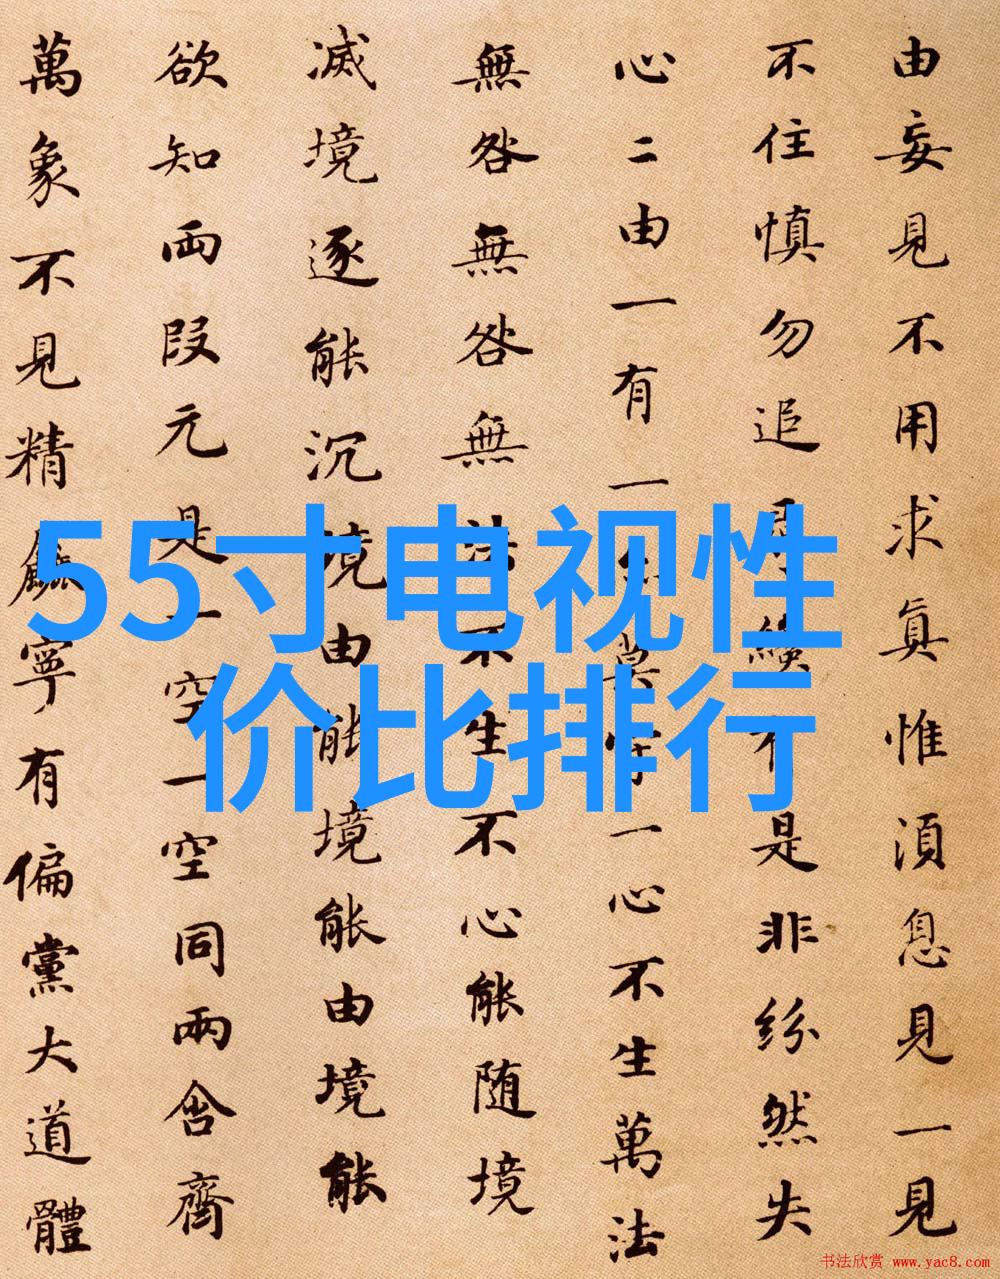 由妄見不用求真惟湏息見一見
不住慎勿追是非紛然失
心二由一有一亦莫守一心不生萬法
無咎無咎無法不生不心能随境
滅境逐能沉境由能能境能由境能
欲知两段元是一空一空同兩含齊
萬象不見精麤寧有偏黨大道體
55寸电视性
价比排行
书法欣赏 www.yac8.com